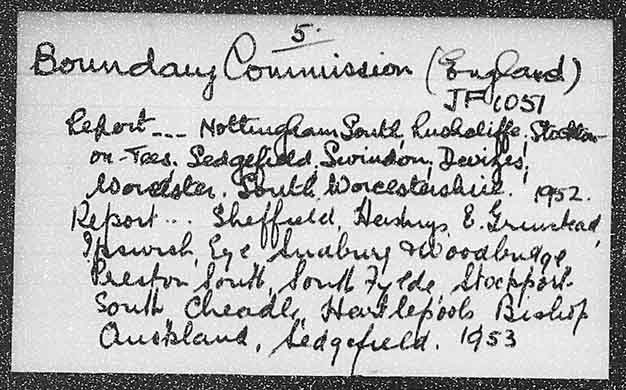 5.
Boundary Commission (England)
JF 1051
Report --- Nottingham South, Rushcliffe, Stockton-
on-Tees, Sedgefield, Swindon, Devizes,
Worcester, South Worcestershire. 1952.
Report ... Sheffield, Hastings, E. Grinstead,
Ipswich, Eye, Sudbury & Woodbridge,
Preston South, South Fylde, Stockport
South, Cheadle, Hartlepools, Bishop
Auckland, Sedgefield. 1953